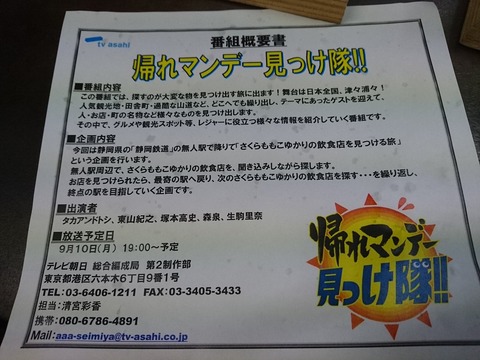 tv asahi
番組概要書
帰れマンデー見っけ隊!!
■番組内容
この番組では、探すのが大変な物を見つけ出す旅に出ます!舞台は日本全国、津々浦々!
人気観光地・田舎町・過酷な山道など、どこへでも繰り出し、テーマにあったゲストを迎えて、
人・お店・町の名物など様々なものを見つけ出します。
その中で、グルメや観光スポット等、レジャーに役立つ様々な情報を紹介していく番組です。
■企画内容
今回は静岡県の「静岡鉄道」の無人駅で降りて「さくらももこゆかりの飲食店を見つける旅」
という企画を行います。
無人駅周辺で、さくらももこゆかりの飲食店を、聞き込みしながら探します。
お店を見つけられたら、最寄の駅へ戻り、次のさくらももこゆかりの飲食店を探す・・・を繰り返し、
終点の駅を目指していく企画です。
■出演者
タカアンドトシ、東山紀之、塚本高史、森泉、生駒里奈
■放送予定日
9月10日(月) 19:00～予定
テレビ朝日 総合編成局 第2制作部
東京都港区六本木6丁目9番1号
TEL:03-6406-1211 FAX:03-3405-3433
担当:清宮彩香
携帯:080-6786-4891
Mail:aaa-seimiya@tv-asahi.co.jp
帰れマンデー
見っけ隊!!